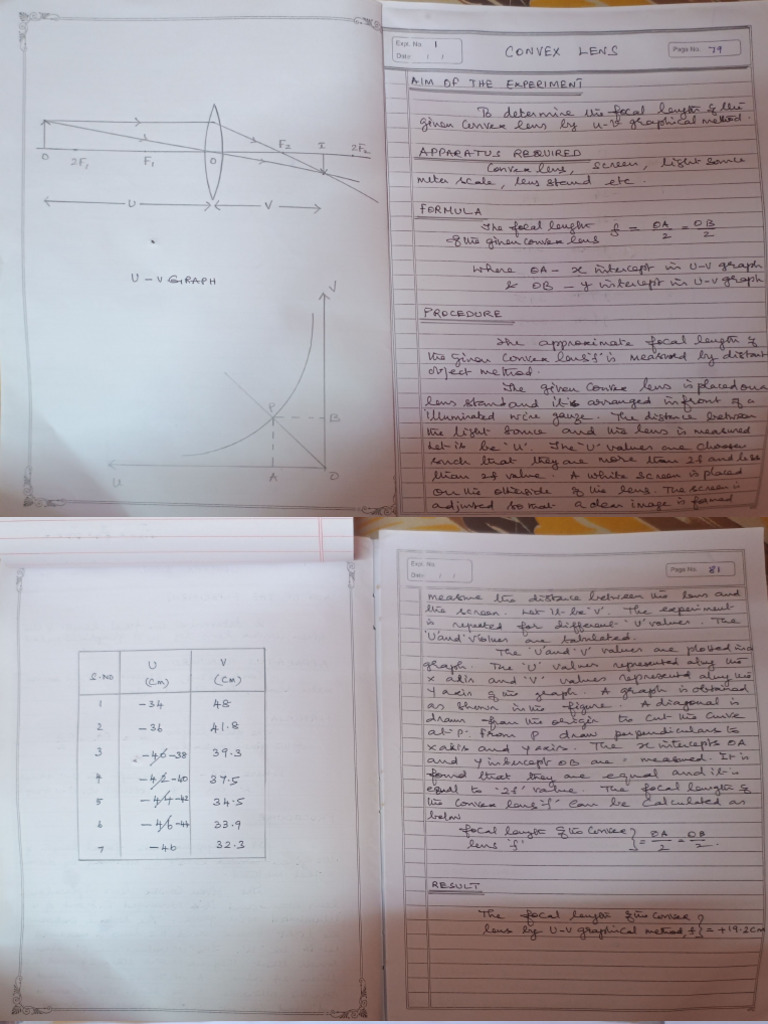 O
2F₁
F₁
O
F₂
I
2F₂
U
V
U - V GRAPH
V
P
B
U
A
O
Expt. No. 1
Date : / /
CONVEX LENS
Page No. 79
AIM OF THE EXPERIMENT
To determine the focal length of the
given convex lens by u-v graphical method.
APPARATUS REQUIRED
Convex lens, screen, light source
meter scale, lens stand etc.
FORMULA
The focal lenght
of the given convex lens f = OA/2 = OB/2
where OA - x intercept in U-V graph
& OB - y intercept in U-V graph
PROCEDURE
The approximate focal length of
the given convex lens 'f' is measured by distant
object method.
The given convex lens is placed on a
lens stand and it is arranged infront of a
illuminated wire gauze. The distance between
the light source and the lens is measured
Let it be 'U'. The 'U' values are choosen
such that they are more than 2f and less
than 2f value. A white screen is placed
on the otherside of the lens. The screen is
adjusted so that a clear image is formed
S.NO U (cm) V (cm)
1 -34 48
2 -36 41.8
3 -40 -38 39.3
4 -42 -40 37.5
5 -44 -42 34.5
6 -46 -44 33.9
7 -46 32.3
Expt. No.
Date : / /
Page No. 81
measure the distance between the lens and
the screen. Let it be 'V'. The experiment
is repeated for different 'U' values. The
'U' and 'V' values are tabulated.
The 'U' and 'V' values are plotted in a
graph. The 'U' values represented along the
x axis and 'V' values represented along the
Y axis of the graph. A graph is obtained
as shown in the figure. A diagonal is
drawn from the origin to cut the curve
at P. From P draw perpendiculars to
x axis and y axis. The x intercepts OA
and y intercept OB are measured. It is
found that they are equal and it is
equal to '2f' value. The focal length of
the convex lens 'f' can be calculated as
below
focal length of the convex
lens 'f' } = OA/2 = OB/2.
RESULT
The focal length of the convex
lens by U-V graphical method, f } = +19.2cm